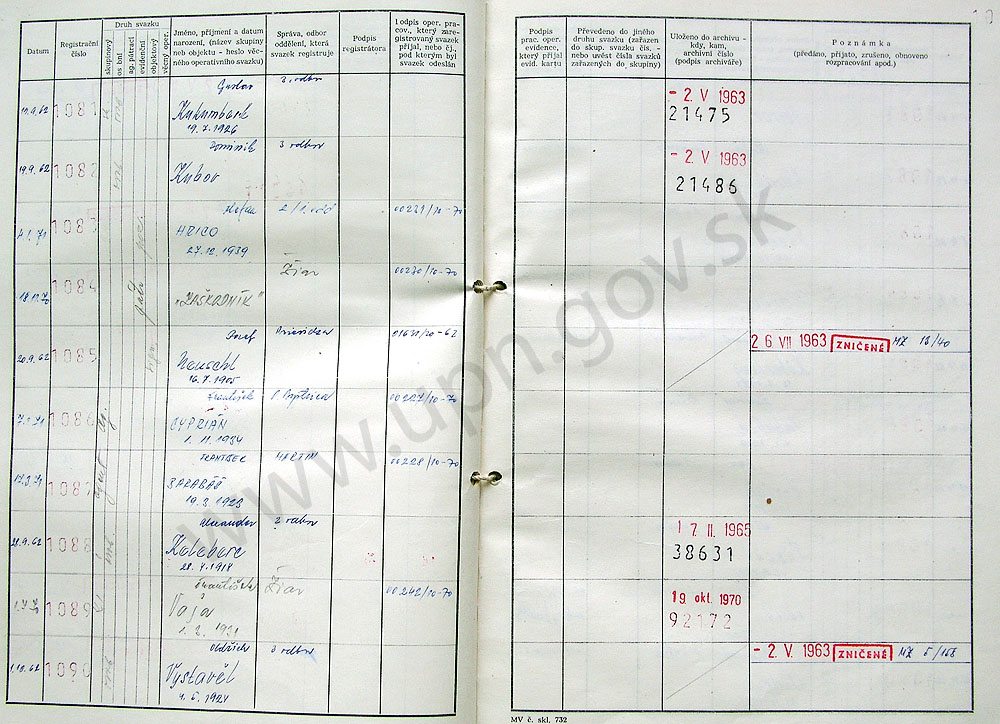 Datum
Registrační číslo
Druh svazku
skupinový
osobní
ag. pátrací
evidenční
objektový
věcný oper.
Jméno, příjmení a datum
narození, (název skupiny
neb objektu - heslo věc-
ného operativního svazku)
Správa, odbor
oddělení, která
svazek registruje
Podpis
registrátora
Podpis oper. pra-
cov., který zare-
gistrovaný svazek
přijal, nebo čj.,
pod kterým byl
svazek odeslán
Podpis
prac. oper.
evidence,
který přijal
evid. kartu
Převedeno do jiného
druhu svazku (zařazen
do skup. svazku čís. -
nebo uvést čísla svazků
zařazených do skupiny)
Uloženo do archivu -
kdy, kam,
archivní číslo
(podpis archiváře)
Poznámka
(předáno, přijato, zrušeno, obnoveno
rozpracování apod.)
19.9.62 1081 Gustav 2. odbor
19.7.1926
- 2. V 1963
21475
19.9.62 1082 Dominik 3 odbor
Kubov
- 2. V 1963
21486
1083 Štefan
HRICO
27.12.1939
1084 Žiar 00230/10-70
"ZAŠKODNÍK"
20.9.62 1085 Jozef Prievidza 01631/20-62
Neuschl
16.7.1905
26 VII 1963 ZNIČENÉ MZ 18/40
1086 František P. Bystrica 00227/10-70
CYPRIÁN
1.11.1934
1087 FRANTIŠEK MARTIN 00228/10-70
BARABÁŠ
19.3.1923
agent
28.9.62 1088 Alexander 2 odbor
28.4.1914
17. II. 1965
38631
1089 František Žiar 00242/10-70
Vajs
19 okt. 1970
92172
1.10.62 1090 Oldřich 3 odbor
Vystavěl
4.5.1924
- 2. V. 1963 ZNIČENÉ MZ 5/168
MV č. skl. 732
www.upn.gov.sk